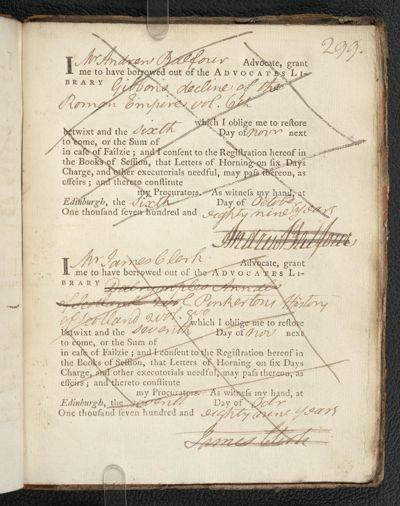 299.
I Mr Andrew Balfour Advocate, grant
me to have borrowed out of the ADVOCATES LI-
BRARY Gibbons decline of the
Roman Empire vol. 6th
which I oblige me to restore
betwixt and the sixth Day of Novr next
to come, or the Sum of
in case of Failzie; and I consent to the Registration hereof in
the Books of Session, that Letters of Horning on six Days
Charge, and other executorials needful, may pass thereon, as
effeirs; and thereto constitute
my Procurators. As witness my hand, at
Edinburgh, the sixth Day of Octobr
One thousand seven hundred and eighty nine years
Andrew Balfour
I Mr James Clerk Advocate, grant
me to have borrowed out of the ADVOCATES LI-
BRARY Dalrymples Annals
of Scotland vol Pinkertons History
of Scotland 2 vol. 8vo
which I oblige me to restore
betwixt and the seventh Day of Nov next
to come, or the Sum of
in case of Failzie; and I consent to the Registration hereof in
the Books of Session, that Letters of Horning on six Days
Charge, and other executorials needful, may pass thereon, as
effeirs; and thereto constitute
my Procurators. As witness my hand, at
Edinburgh, the seventh Day of Octr
One thousand seven hundred and eighty nine years
James Clerk